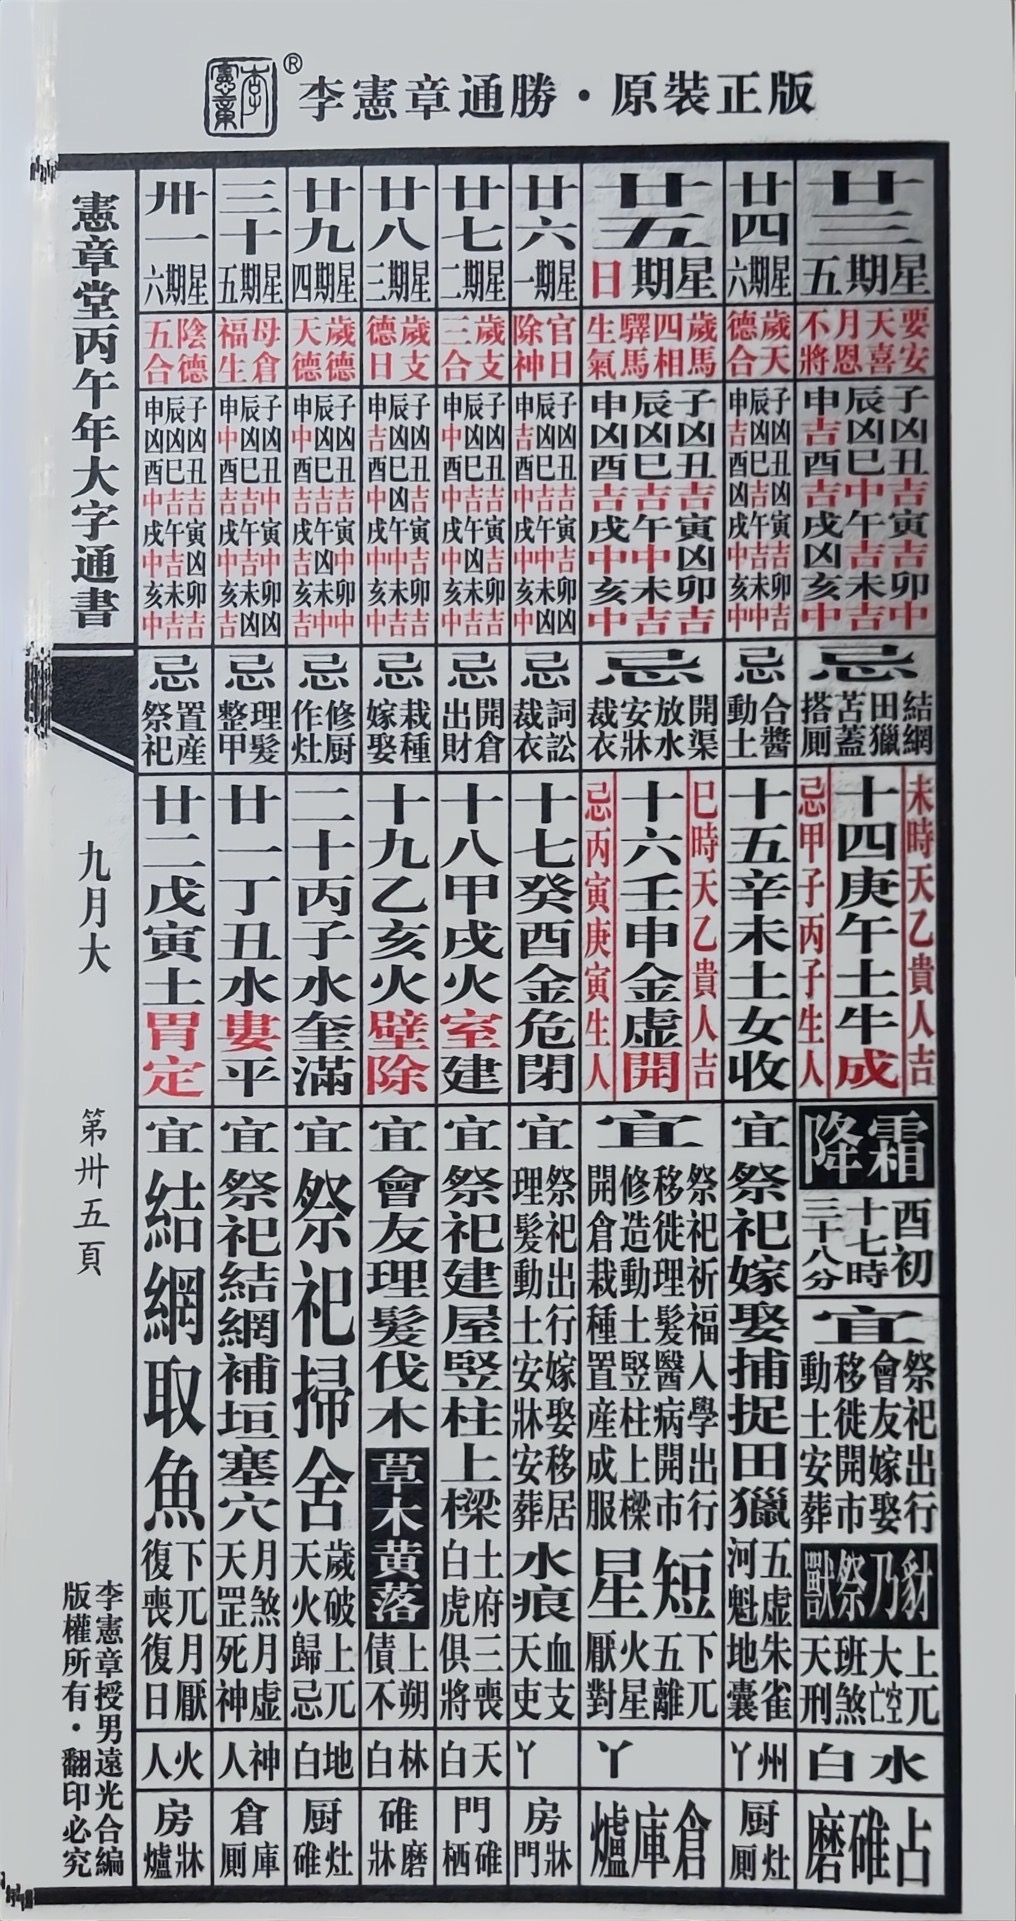 李憲章
®
李憲章通勝・原裝正版
廿三
星期五
要安
天喜
月恩
不將
子凶丑吉寅吉卯中
辰凶巳中午吉未吉
申吉酉吉戌凶亥中
忌
結網
田獵
苫蓋
搭厠
未時天乙貴人吉
十四庚午土牛成
忌甲子丙子生人
霜降
酉初
十七時
三十八分
宜
祭祀出行
會友嫁娶
移徙開市
動土安葬
豺乃祭獸
上兀
大空亡
班煞
天刑
水白
占碓磨
廿四
星期六
歲天
德合
子凶丑凶寅吉卯吉
辰凶巳吉午吉未中
申吉酉凶戌中亥中
忌
合醬
動土
十五辛未土女收
宜
祭祀嫁娶捕捉田獵
五虛朱雀
河魁地囊
州丫
厨
灶厠
廿五
星期日
歲馬
四相
驛馬
生氣
子凶丑吉寅凶卯吉
辰凶巳吉午中未吉
申凶酉吉戌中亥中
忌
開渠
放水
安牀
裁衣
巳時天乙貴人吉
十六壬申金虛開
忌丙寅庚寅生人
宜
祭祀祈福入學出行
移徙理髮醫病開市
修造動土竪柱上樑
開倉栽種置産成服
短星
下兀
五離
火星
厭對
丫
倉庫爐
廿六
星期一
官日
除神
子凶丑吉寅中卯凶
辰凶巳吉午中未凶
申吉酉中戌中亥中
忌
詞訟
裁衣
十七癸酉金危閉
宜
祭祀出行嫁娶移居
理髮動土安牀安葬
水痕
血支
天吏
丫
房
牀門
廿七
星期二
歲支
三合
子凶丑吉寅吉卯吉
辰凶巳吉午凶未吉
申中酉中戌中亥中
忌
開倉
出財
十八甲戌火室建
宜
祭祀建屋竪柱上樑
土府三喪
白虎俱將
天白
門
碓栖
廿八
星期三
歲支
德日
子凶丑吉寅吉卯吉
辰凶巳凶午中未吉
申吉酉中戌中亥中
忌
栽種
嫁娶
十九乙亥火壁除
宜
會友理髮伐木
草木黄落
上朔
債不
林白
碓
磨牀
廿九
星期四
歲德
天德
子凶丑吉寅中卯中
辰凶巳吉午凶未中
申中酉吉戌吉亥吉
忌
修厨
作灶
二十丙子水奎滿
宜
祭祀掃舍
歲破上兀
天火歸忌
地白
厨
灶碓
三十
星期五
母倉
福生
子凶丑中寅吉卯凶
辰凶巳吉午中未凶
申中酉吉戌中亥吉
忌
理髮
整甲
廿一丁丑水婁平
宜
祭祀結網補垣塞穴
月煞月虛
天罡死神
神人
倉
庫厠
卅一
星期六
陰德
五合
子凶丑吉寅凶卯吉
辰凶巳吉午吉未吉
申凶酉中戌中亥中
忌
置産
祭祀
廿二戊寅土胃定
宜
結網取魚
下兀月厭
復喪復日
火人
房
牀爐
憲章堂丙午年大字通書
九月大
第卅五頁
李憲章授男遠光合編
版權所有・翻印必究